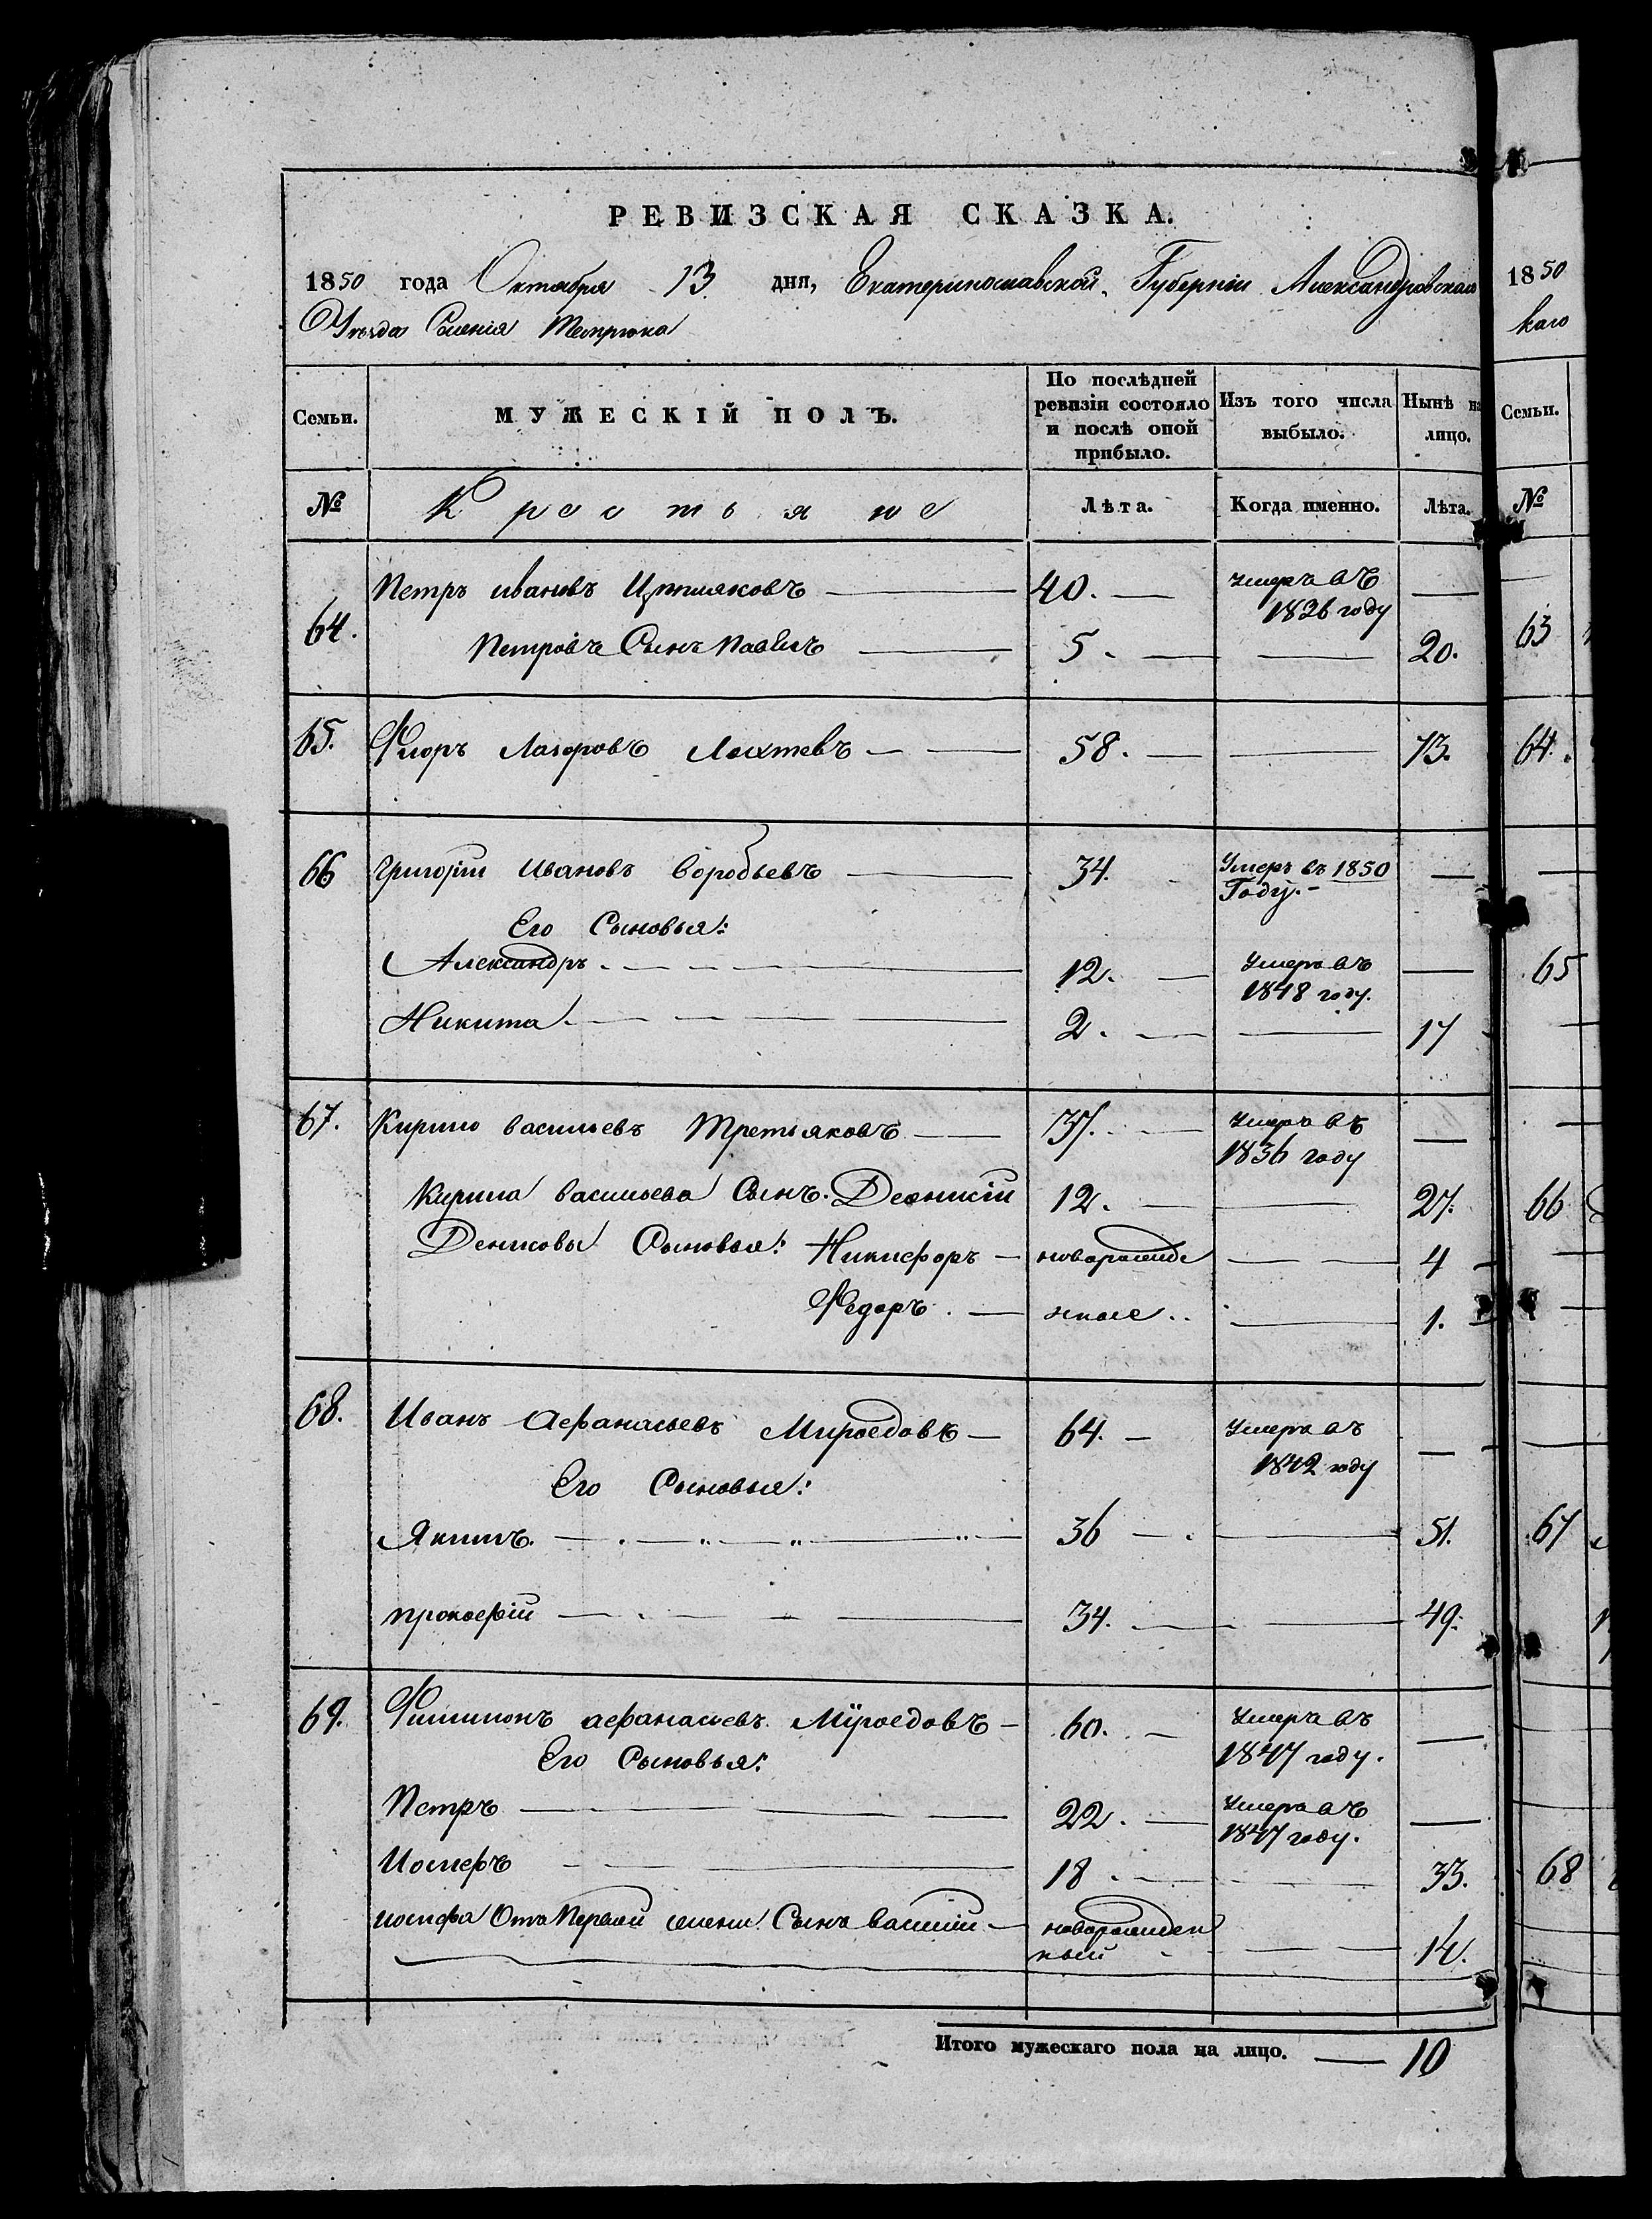 РЕВИЗСКАЯ СКАЗКА.
1850 года Октября 13 дня, Екатеринославской Губерніи Александровскаго
Уѣзда Селенія Темрюка
Семьи. МУЖЕСКІЙ ПОЛЪ. По послѣдней ревизіи состояло и послѣ оной прибыло. Изъ того числа выбыло. Нынѣ на лицо.
№ Крестьяне Лѣта. Когда именно. Лѣта.
64. Петръ ивановъ 40. — умеръ въ 1836 году —
Петровъ Сынъ Павелъ — 5. — — 20.
65. Флоръ Лахтевъ — 58. — — 73.
66 Григорій Ивановъ Воробьевъ — 34. Умеръ въ 1850 Году. —
Его Сыновья:
Александръ — 12. — Умеръ въ 1848 году. —
Никита — 2. — — 17
67. Кирило васильевъ Третьяковъ — 37. — Умеръ въ 1836 году —
Кирила васильева Сынъ 12. — — 27.
Денисовы Сыновья: Никифоръ — новорожде — 4
Федоръ. — нные.. — 1.
68. Иванъ Афанасьевъ Мироедовъ — 64. — Умеръ въ 1842 году —
Его Сыновья:
Якимъ. — 36 — — 51.
прокофій — 34. — — 49.
69. Филимонъ афанасьевъ Мироедовъ — 60. — Умеръ въ 1847 году. —
Его Сыновья:
Петръ — 22. — Умеръ въ 1847 году. —
Иосифъ — 18 — — 33.
иосифа Отъ Первой жены Сынъ Василій — новорожден ный — 14.
Итого мужескаго пола на лицо. — 10
1850
каго
Семьи.
№
63
64.
65
66
67
68